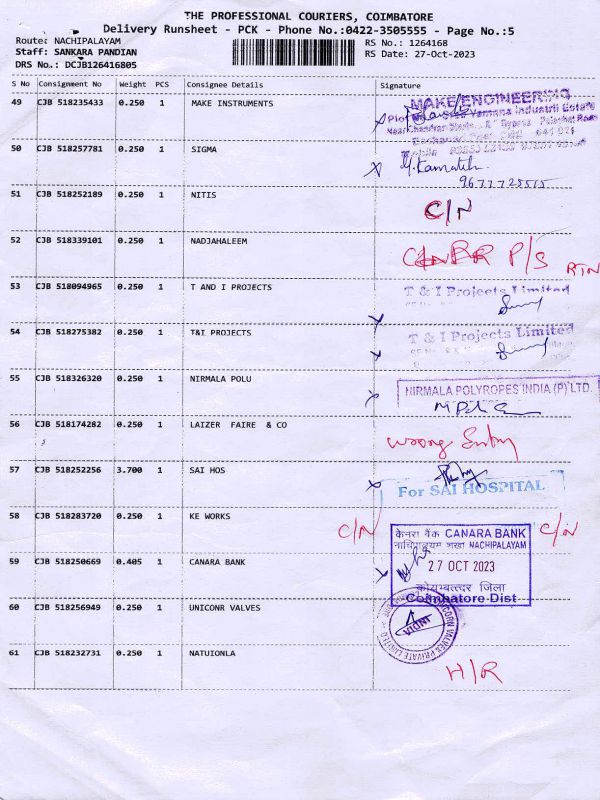 THE PROFESSIONAL COURIERS, COIMBATORE
Delivery Runsheet - PCK - Phone No.:0422-3505555 - Page No.:5
Route: NACHIPALAYAM
RS No.: 1264168
Staff: SANKARA PANDIAN
RS Date: 27-Oct-2023
DRS No.: DCJB126416805
S No Consignment No Weight PCS Consignee Details Signature
49 CJB 518235433 0.250 1 MAKE INSTRUMENTS
MAKE ENGINEERING
50 CJB 518257781 0.250 1 SIGMA
9677728515
51 CJB 518252189 0.250 1 NITIS C/N
52 CJB 518339101 0.250 1 NADJAHALEEM P/S RTN
53 CJB 518094965 0.250 1 T AND I PROJECTS T & I Projects Limited
54 CJB 518275382 0.250 1 T&I PROJECTS T & I Projects Limited
55 CJB 518326320 0.250 1 NIRMALA POLU NIRMALA POLYROPES INDIA (P) LTD.
56 CJB 518174282 0.250 1 LAIZER FAIRE & CO wrong Entry
57 CJB 518252256 3.700 1 SAI HOS For SAI HOSPITAL
58 CJB 518283720 0.250 1 KE WORKS C/N C/N
केनरा बैंक CANARA BANK
NACHIPALAYAM
59 CJB 518250669 0.405 1 CANARA BANK 27 OCT 2023
कोयम्बत्तूर जिला
Coimbatore Dist
60 CJB 518256949 0.250 1 UNICONR VALVES
61 CJB 518232731 0.250 1 NATUIONLA H/R